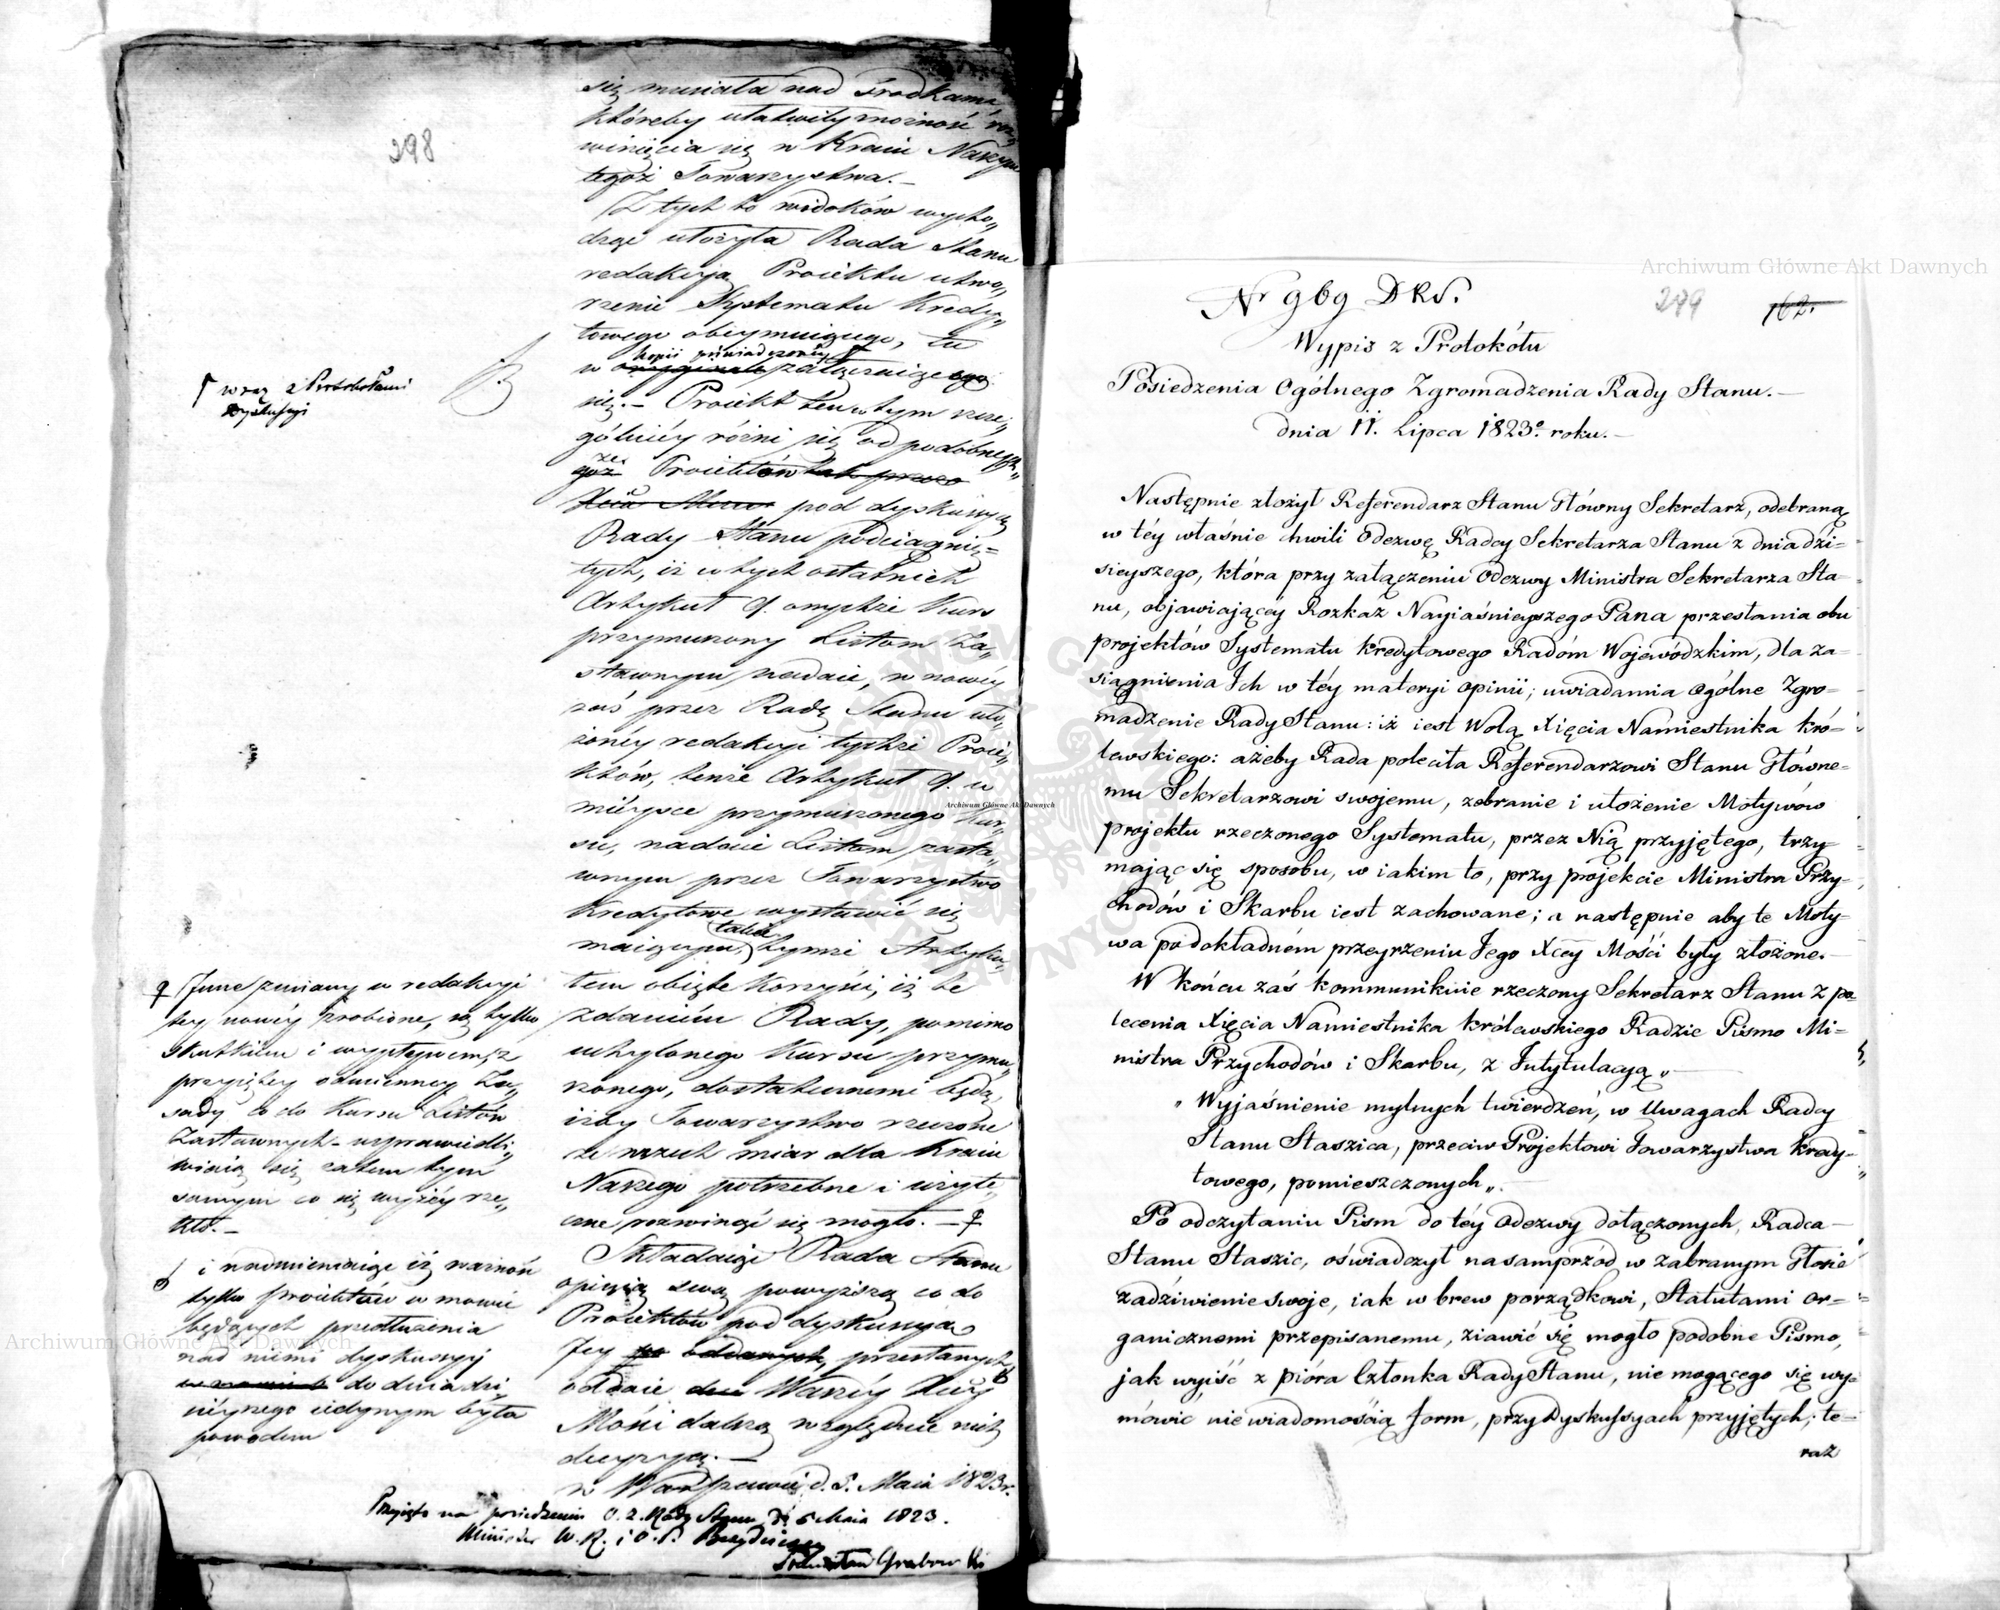 298
się musiała nad środkami
któreby ułatwiły możność roz„
winięcia się w Kraiu Naszym
tegoż Towarzystwa. —
Z tych to widoków wycho„
dząc ułożyła Rada Stanu
redakcyą Proiektu utwo„
rzenia Systematu Kredy„
towego obeymuiącego, tu
w kopii poświadczoney załączaiącego
się. — Proiekt ten w tym szcze„
gólniéy różni się od podobnych„
że Proiektów
pod dyskussyą
Rady Stanu podciągnię=
tych, iż w tych ostatnich
Artykuł 9. onychże Kurs
przymuszony Listom Za„
stawnym nadaie, w nowéy
zaś przez Radę Stanu uło„
żonéy redakcyi tychże Proie„
któw, tenże Artykuł 9. w
mieysce przymuszonego Kur„
su, nadaie Listom zasta„
wnym przez Towarzystwo
Kredytowe wystawić się
maiącym, takie tymże Artyku„
łem obięte korzyści, iż te
zdaniem Rady, pomimo
uchylonego Kursu przymu„
szonego, dostatecznemi będą,
iżby Towarzystwo rzeczone
ze wszech miar dla Kraiu
Naszego potrzebne i użyte„
czne rozwinąć się mogło. —
Składaiąc Rada Stanu
opinią swą powyższą co do
Proiektów pod dyskussyą
Jey przesłanych
oddaie Waszéy Xcéy
Mości dalszą względnie nich
decyzyą. —
w Warszawie d. 5. Maia 1823 r.
wraz z Protokołami
dyskussyi
Inne zmiany w redakcyi
tey nowéy zrobione, są tylko
skutkiem i wypływem z
przyiętey odmienney Za„
sady co do Kursu Listów
Zastawnych - usprawiedli„
wiaią się zatem tym
samym co się wyżéy rze„
kło. —
i nadmieniaiąc iż ważność
tylko proiektów w mowie
będących przedłużenia
nad niemi dyskussyi
do dnia dzi„
sieyszego iedynym była
powodem
Przyięto na posiedzeniu O. Z. Rady Stanu d. 5 Maia 1823.
Minister W. R. i O. P. Prezyduiący
Stanisław Grabowski
Nr 969 DRS.
299
162.
Wypis z Protokółu
Posiedzenia Ogólnego Zgromadzenia Rady Stanu. —
dnia 11. Lipca 1823º roku. —
Następnie złożył Referendarz Stanu Główny Sekretarz, odebraną
w téy właśnie chwili Odezwę Radcy Sekretarza Stanu z dnia dzi-
sieyszego, która przy załączeniu Odezwy Ministra Sekretarza Sta-
nu, objawiającéy Rozkaz Nayiaśnieyszego Pana przesłania obu
projektów Systematu kredytowego Radóm Wojewódzkim, dla za-
siągnienia Ich w téy materyi opinii; uwiadamia Ogólne Zgro-
madzenie Rady Stanu: iż iest Wolą Xięcia Namiestnika kró-
lewskiego: ażeby Rada poleciła Referendarzowi Stanu Główne-
mu Sekretarzowi swojemu, zebranie i ułożenie Motywów
projektu rzeczonego Systematu, przez Nią przyjętego, trzy-
mając się sposobu, w iakim to, przy projekcie Ministra Przy-
chodów i Skarbu iest zachowane; a następnie aby te Moty-
wa po dokładném przeyrzeniu Jego Xcey Mości były złożone. —
W końcu zaś kommunikuie rzeczony Sekretarz Stanu z po-
lecenia Xięcia Namiestnika królewskiego Radzie Pismo Mi-
nistra Przychodów i Skarbu, z Intytulacyą „ —
„ Wyjaśnienie mylnych twierdzeń, w Uwagach Radcy
Stanu Staszica, przeciw Projektowi Towarzystwa kredy-
towego, pomieszczonych „. —
Po odczytaniu Pism do téy Odezwy dołączonych, Radca —
Stanu Staszic, oświadczył nasamprzód w zabranym Głosie
zadziwienie swoje, iak w brew porządkowi, Statutami or-
ganicznemi przepisanemu, ziawić się mogło podobne Pismo,
jak wyiść z pióra Członka Rady Stanu, nie mogącego się wy-
mówić niewiadomością form, przy Dyskussyach przyjętych; te-
raz
Archiwum Główne Akt Dawnych
Archiwum Główne Akt Dawnych
Archiwum Główne Akt Dawnych